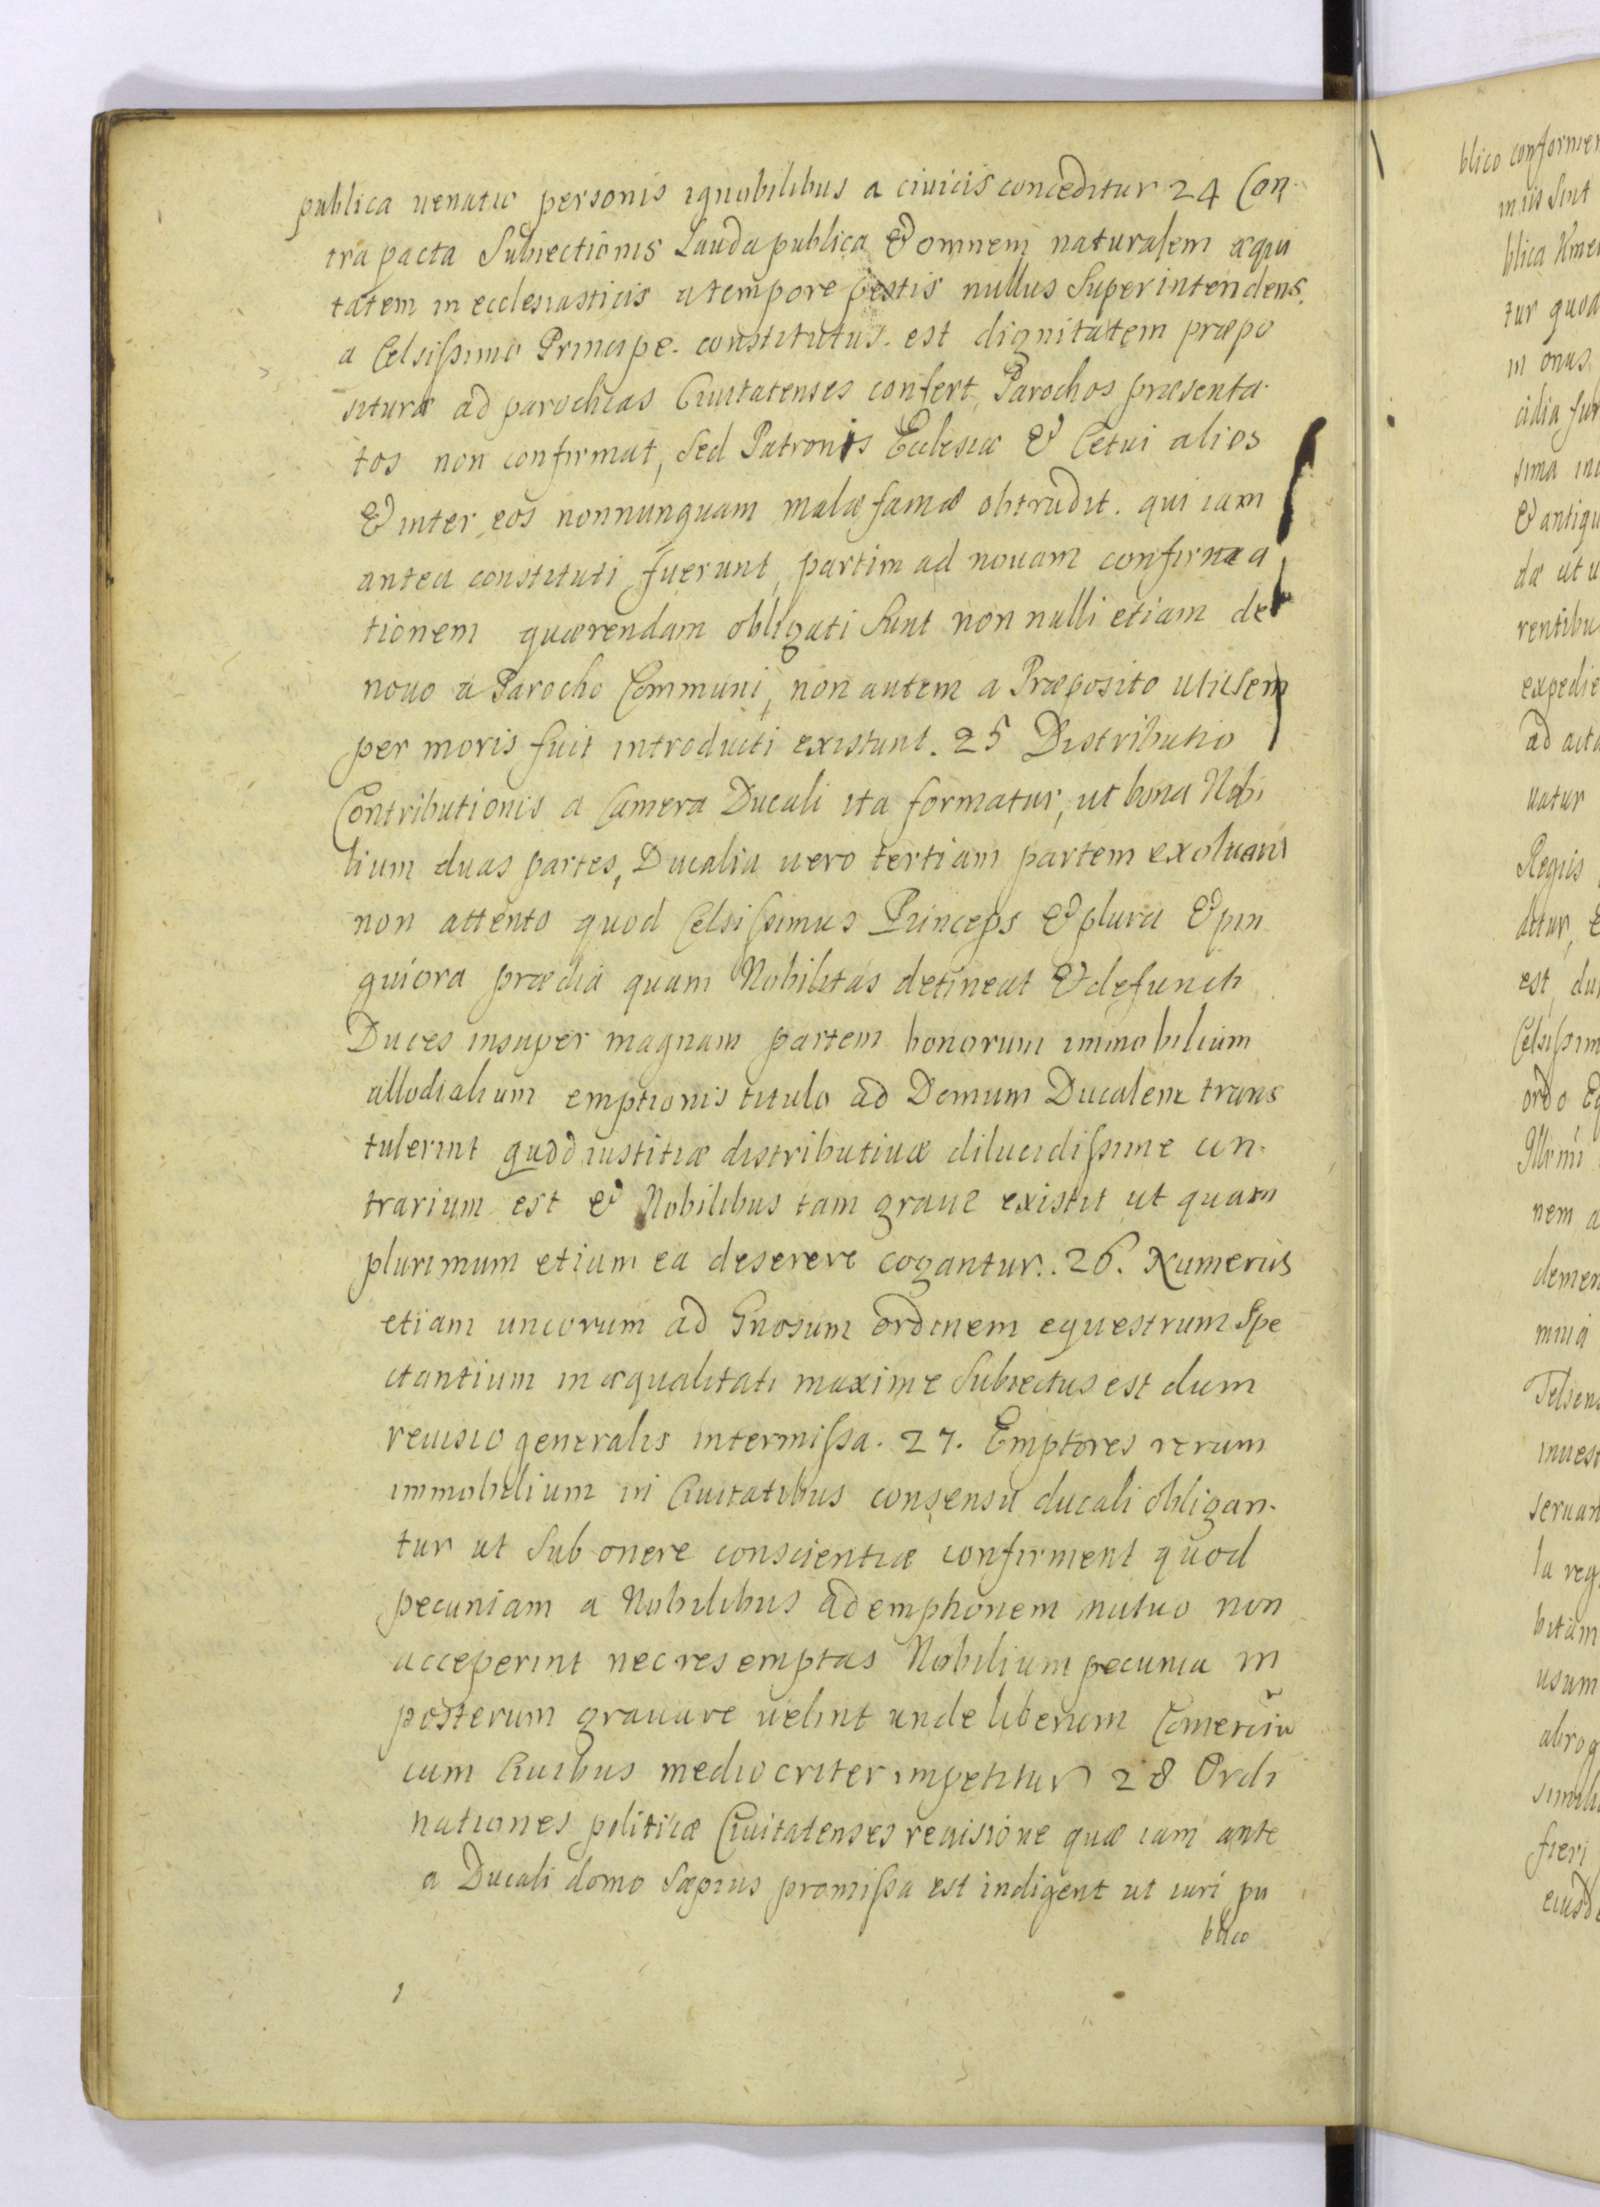 publica uenatio personis ignobilibus a ciuicis conceditur 24 Con-
tra pacta Subiectionis Lauda publica & omnem naturalem æqui
tatem in ecclesiasticis a tempore pestis nullus Superintendens
a Celsissimo Principe constitutus est dignitatem præpo
situræ ad parochias Ciuitatenses confert, Parochos præsenta-
tos non confirmat, Sed Patronis Eclesiæ & Cetui alios
& inter eos nonnunquam malæ famæ obtrudit. qui iam
antea constituti fuerunt, partim ad nouam confirma
tionem quærendam obligati Sunt non nulli etiam de
nouo a Parocho Communi, non autem a Præposito uti sem
per moris fuit introducti existunt. 25 Distributio
Contributionis a Camera Ducali ita formatur, ut bona Nobi
lium duas partes, Ducalia uero tertiam partem exoluant
non attento quod Celsissimus Princeps & plura & pin
guiora prædia quam Nobilitas detineat & defuncti
Duces insuper magnam partem bonorum immobilium
allodialium emptionis titulo ad Domum Ducalem trans
tulerint quod iustitiæ distributiuæ dilucidissime con-
trarium est & Nobilibus tam graue existit ut quam
plurimum etiam ea deserere cogantur.. 26. Numerus
etiam uncorum ad Gnosum ordinem equestrum Spe
ctantium inæqualitati maxime Subiectus est dum
reuisio generalis intermissa. 27. Emptores rerum
immobilium in Ciuitatibus consensu ducali obligan-
tur ut Sub onere conscientiæ confirment quod
pecuniam a Nobilibus ad emptionem mutuo non
acceperint nec res emptas Nobilium pecunia in
posterum grauare uelint unde liberum Comerciũ
cum Ciuibus mediocriter impetitur 28 Ordi
nationes politicæ Ciuitatenses reuisione quæ iam ante
a Ducali domo Sæpius promissa est indigent ut iuri pu
blico
blico conformen
in iis Sint
blica
tur quod
in onus
cidia
sima
& antiqu
dæ ut u
rentibu
expedie
ad acta
uatur
Regiis
est, du
Celsissim
ordo Eq
nem a
demen
inuest
seruan
la reg
bitam
usum
abrog
fieri